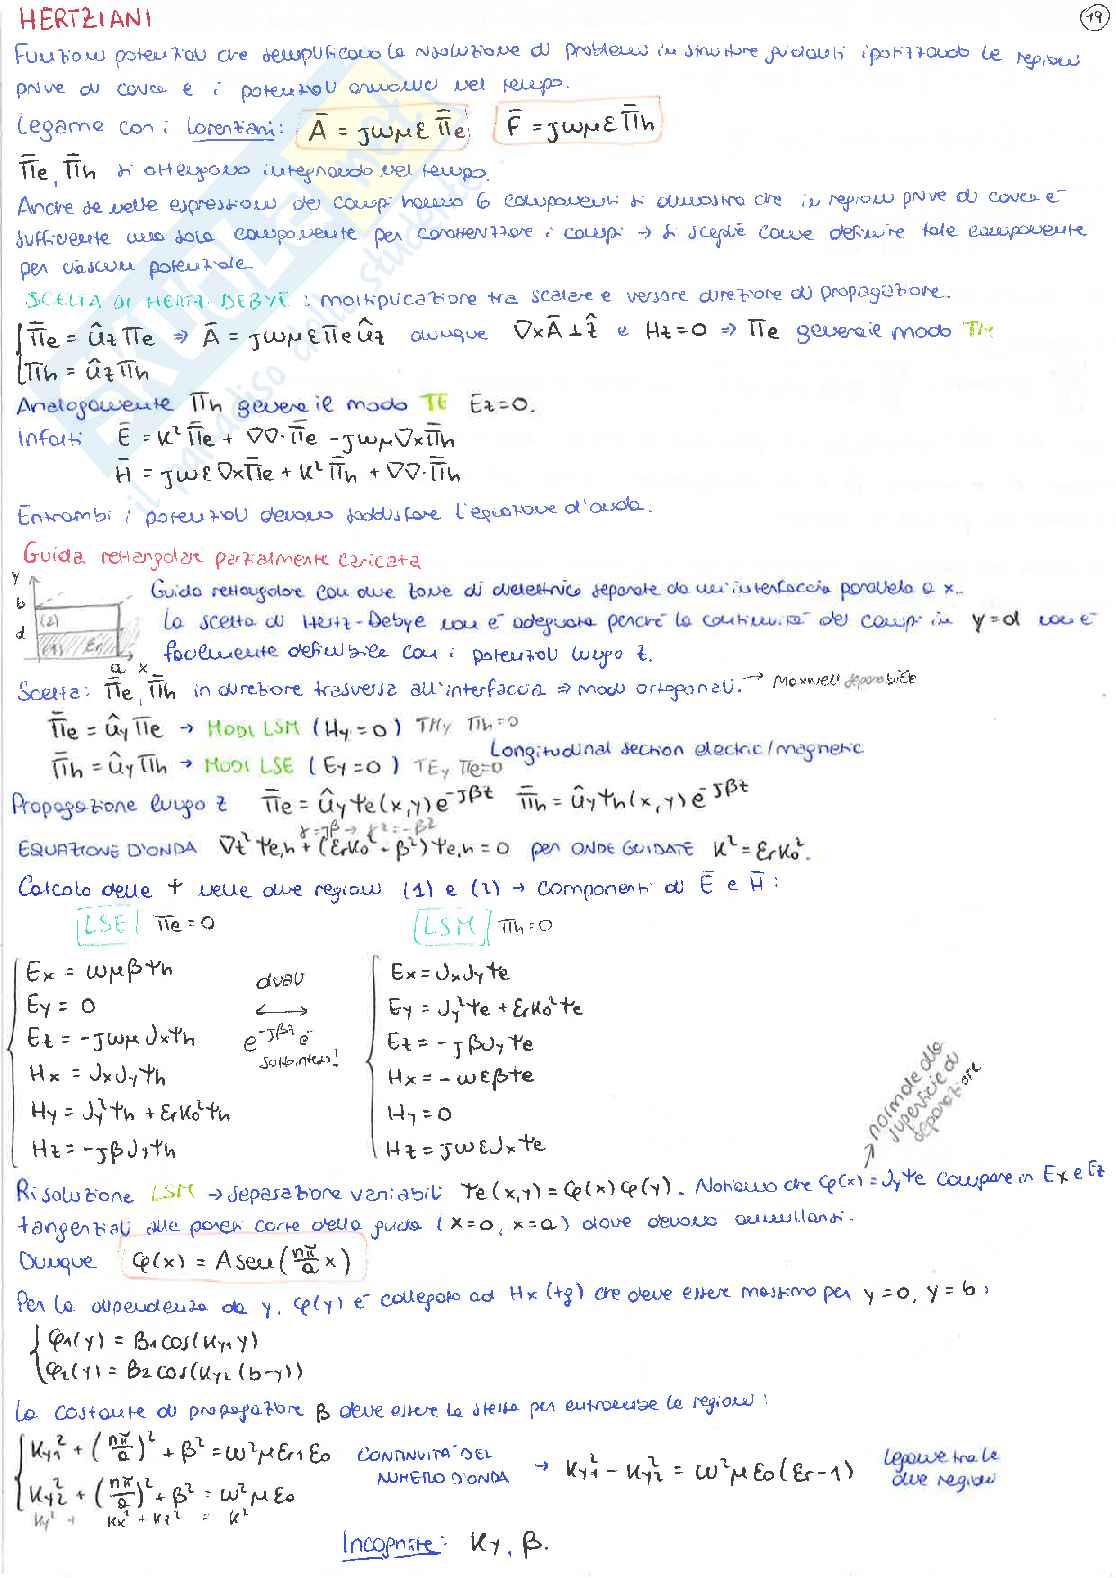 HERTZIANI
19
Funzioni potenziali che semplificano la risoluzione di problemi in strutture guidanti ipotizzando le regioni
prive di cariche e i potenziali armonici nel tempo.
Legame con i Lorenziani: Ā = jωμε Π̄e F̄ = jωμε Π̄h
Π̄e, Π̄h si ottengono integrando nel tempo.
Anche se nelle espressioni dei campi hanno 6 componenti si dimostra che in regioni prive di cariche è
sufficiente una sola componente per caratterizzare i campi → si sceglie come definire tale componente
per ciascun potenziale.
SCELTA DI HERTZ-DEBYE: moltiplicazione tra scalare e versore direzione di propagazione.
Π̄e = ûz Πe ⇒ Ā = jωμε Πe ûz dunque ∇×Ā ⊥ ẑ e Hz = 0 ⇒ Πe genera il modo TM
Π̄h = ûz Πh
Analogamente Πh genera il modo TE Ez = 0.
Infatti Ē = K² Π̄e + ∇∇·Π̄e - jωμ∇×Π̄h
H̄ = jωε∇×Π̄e + K² Π̄h + ∇∇·Π̄h
Entrambi i potenziali devono soddisfare l'equazione d'onda.
Guida rettangolare parzialmente caricata
y
b
d
(2)
(1)
εr
a x
Guida rettangolare con due zone di dielettrico separate da un'interfaccia parallela a x.
La scelta di Hertz-Debye non è adeguata perché la continuità dei campi in y = d non è
facilmente definibile con i potenziali lungo z.
Scelta: Π̄e, Π̄h in direzione trasversa all'interfaccia ⇒ modi ortogonali. → Maxwell separabile
Π̄e = ûy Πe → MODI LSM (Hy = 0) TMy Πh = 0
Longitudinal section electric/magnetic
Π̄h = ûy Πh → MODI LSE (Ey = 0) TEy Πe = 0
Propagazione lungo z Π̄e = ûy ψe(x,y) e^-jβz Π̄h = ûy ψh(x,y) e^-jβz
γ = jβ → γ² = -β²
EQUAZIONE D'ONDA ∇t² ψe,h + (εr K0² - β²) ψe,h = 0 per ONDE GUIDATE K² = εr K0².
Calcolo delle ψ nelle due regioni (1) e (2) → componenti di Ē e H̄:
LSE Πe = 0
LSM Πh = 0
Ex = ωμβψh
Ey = 0
Ez = -jωμ ∂xψh
Hx = ∂x∂yψh
Hy = ∂y²ψh + εr K0²ψh
Hz = -jβ∂yψh
duali
↔
e^-jβz è
sottointeso!
Ex = ∂x∂yψe
Ey = ∂y²ψe + εr K0²ψe
Ez = -jβ∂yψe
Hx = -ωεβψe
Hy = 0
Hz = jωε∂xψe
normale alla
superficie di
separazione
Risoluzione LSM → separazione variabili ψe(x,y) = φ(x)φ(y). Notiamo che φ(x) = ∂yψe compare in Ex e Ez
tangenziali alle pareti corte della guida (x=0, x=a) dove devono annullarsi.
Dunque φ(x) = A sen(nπ/a x)
Per la dipendenza da y, φ(y) è collegato ad Hx (tg) che deve essere massimo per y = 0, y = b:
φ1(y) = B1 cos(Ky1 y)
φ2(y) = B2 cos(Ky2 (b-y))
La costante di propagazione β deve essere la stessa per entrambe le regioni:
Ky1² + (nπ/a)² + β² = ω²μεr1ε0 CONTINUITÀ DEL
NUMERO D'ONDA → Ky1² - Ky2² = ω²με0(εr - 1) Legame tra le
due regioni
Ky2² + (nπ/a)² + β² = ω²με0
Ky² + Kx² + Kz² = K²
Incognite: Ky, β.